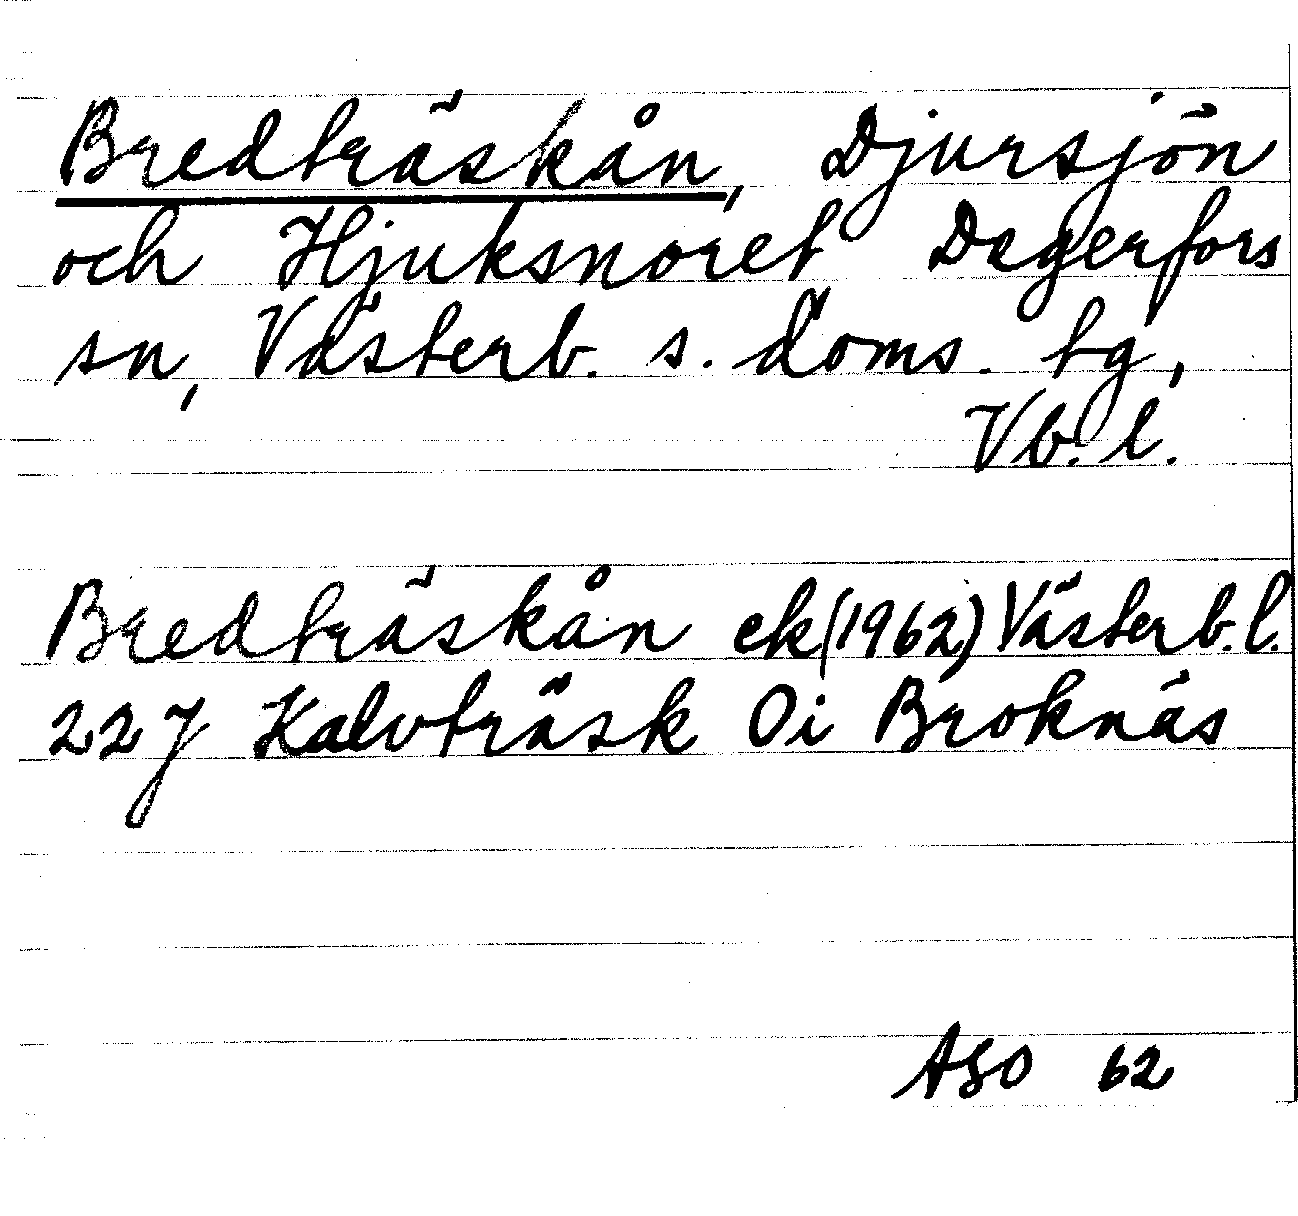 Bredträskån, Djursjön
och Hjuksnoret Degerfors
sn, Västerb. s. doms. tg,
Vb. l.
Bredträskån ek(1962) Västerb. l.
22J Kalvträsk Oi Broknäs
ASO 62